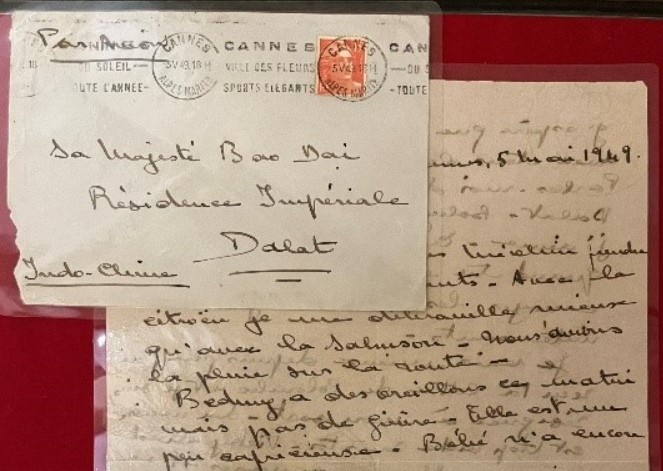 Par Avion
CANNES
DU SOLEIL
TOUTE L'ANNÉE-
CANNES
5-V 49.18H
ALPES-MARITMES
CANNES
VILLE DES FLEURS
SPORTS ÉLÉGANTS
CANNES
5-V 49.18H
ALPES-MARIT
CAN
-DU S
-TOUTE
Sa Majesté Bao Dai
Résidence Impériale
Dalat
Indo-Chine
5 Mai 1949.
Avec la
citroën je me débrouille mieux
qu'avec la Salmson - Nous avons
la pluie sur la route -
a des oreillons ce matin
mais pas de fièvre - Elle est un
peu capricieuse - Bébé n'a encore